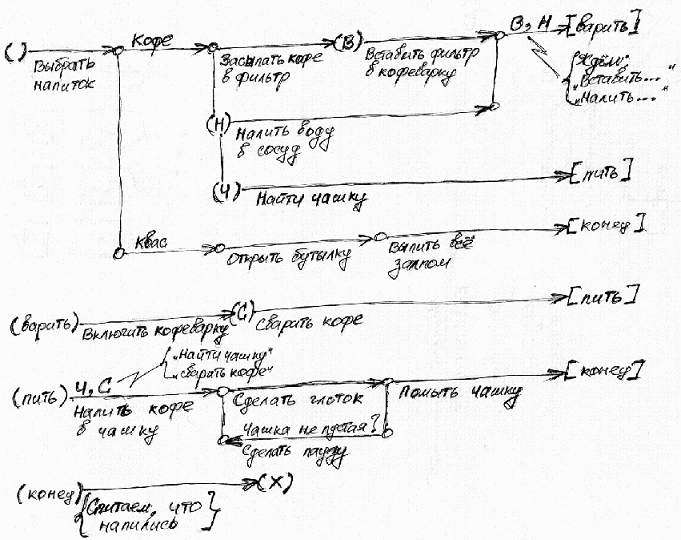 ( ) Выбрать напиток
Кофе
Засыпать кофе в фильтр
(В)
Вставить фильтр в кофеварку
В, Н
[варить]
Ждём:
"Вставить..."
"Налить..."
(Н)
Налить воду в сосуд
(Ч)
Найти чашку
[пить]
Квас
Открыть бутылку
Выпить всё залпом
[конец]
(варить)
Включить кофеварку
(С)
Сварить кофе
[пить]
"Найти чашку"
"Сварить кофе"
(пить)
Ч, С
Налить кофе в чашку
Сделать глоток
Чашка не пустая?
Сделать паузу
Помыть чашку
[конец]
(конец)
{Считаем, что напились}
(X)